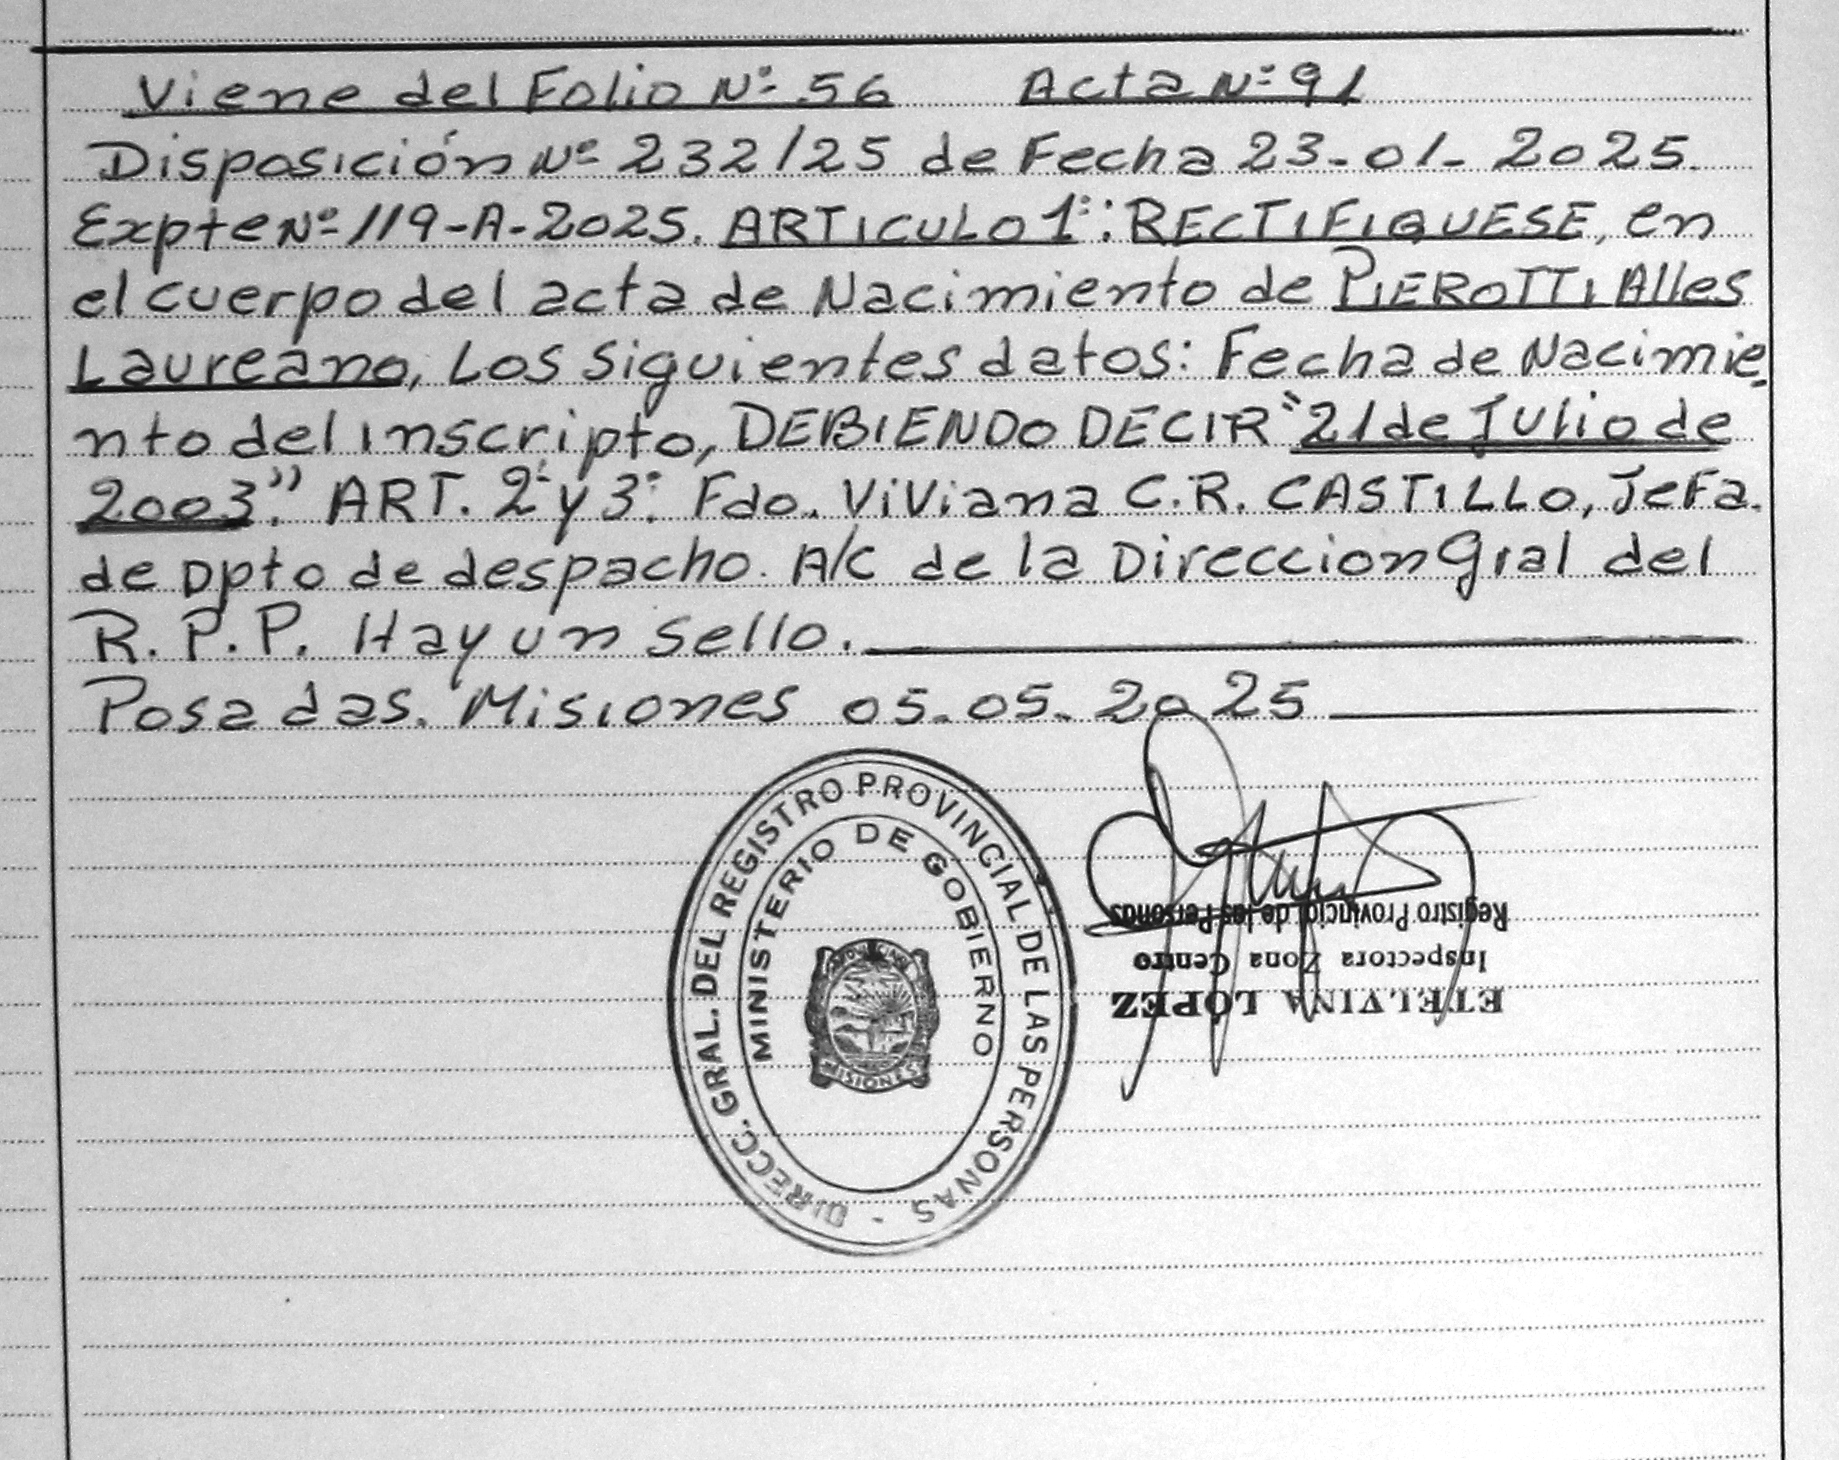 Viene del Folio Nº 56 Acta Nº 91
Disposición Nº 232/25 de Fecha 23-01-2025.
Expte Nº 119-A-2025. ARTICULO 1º: RECTIFIQUESE, en
el cuerpo del acta de Nacimiento de PIEROTTI Alles
Laureano, Los siguientes datos: Fecha de Nacimie-
nto del inscripto, DEBIENDO DECIR "21 de Julio de
2003". ART. 2º y 3º. Fdo. Viviana C.R. CASTILLO, Jefa.
de Dpto de despacho. A/C de la Direccion Gral del
R.P.P. Hay un sello.
Posadas. Misiones 05-05-2025
DIRECC. GRAL. DEL REGISTRO PROVINCIAL DE LAS PERSONAS -
MINISTERIO DE GOBIERNO
MISIONES
ETELVINA LÓPEZ
Inspectora Zona Centro
Registro Provincial de las Personas